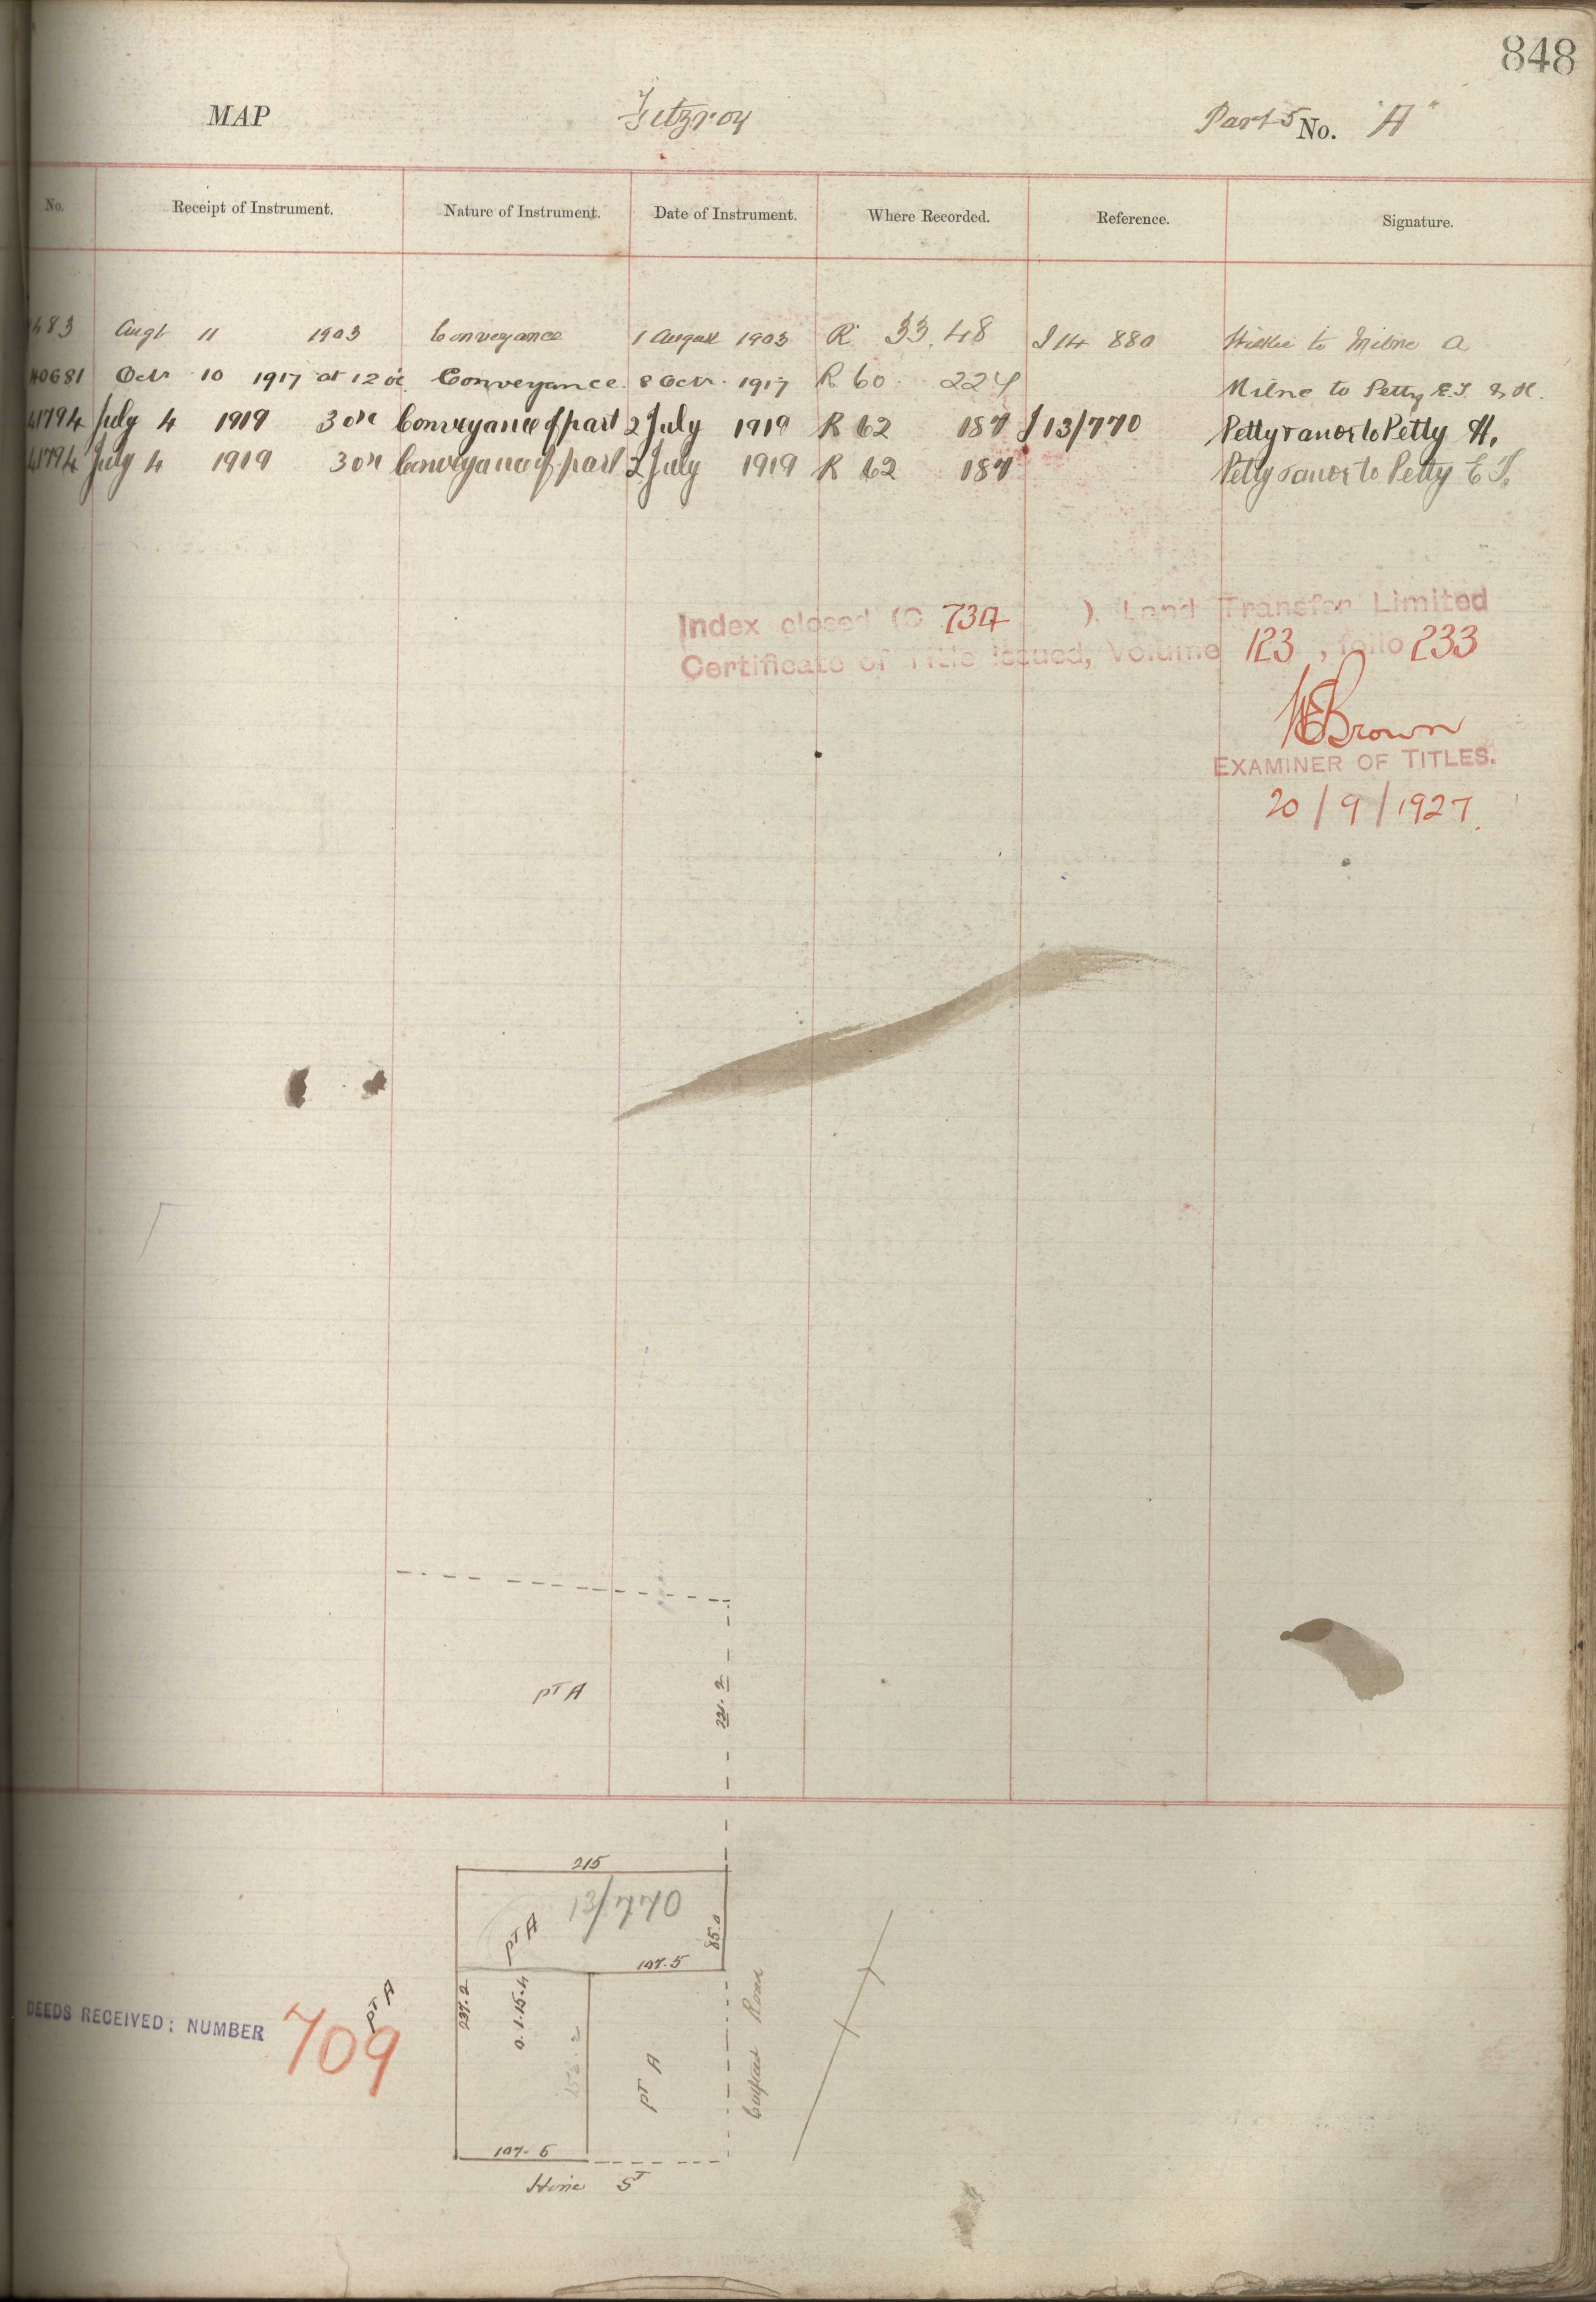 848
MAP Fitzroy Part 5 No. "A"
No. Receipt of Instrument. Nature of Instrument. Date of Instrument. Where Recorded. Reference. Signature.
483 Augt 11 1903 Conveyance 1 August 1903 R. 33. 48 I 14 880 to Milne A
40681 Octr 10 1917 at 12 oc Conveyance. 8 Octr. 1917 R 60. 224 Milne to Petty E.T. & H.
41794 July 4 1919 3 oc Conveyance of part 2 July 1919 R 62 187 I 13/770 Petty & anor to Petty H.
41794 July 4 1919 3 oc Conveyance of part 2 July 1919 R 62 187 Petty & anor to Petty E T.
Index closed (C 734 ). Land Transfer Limited
Certificate of Title issued, Volume 123, folio 233
Brown
EXAMINER OF TITLES.
20/9/1927.
pt A
221.2
215
13/770
pt A
85.0
107.5
237.2
0.1.15.4
152.2
pt A
Road
pt A
DEEDS RECEIVED: NUMBER 709
107.5
Hine St